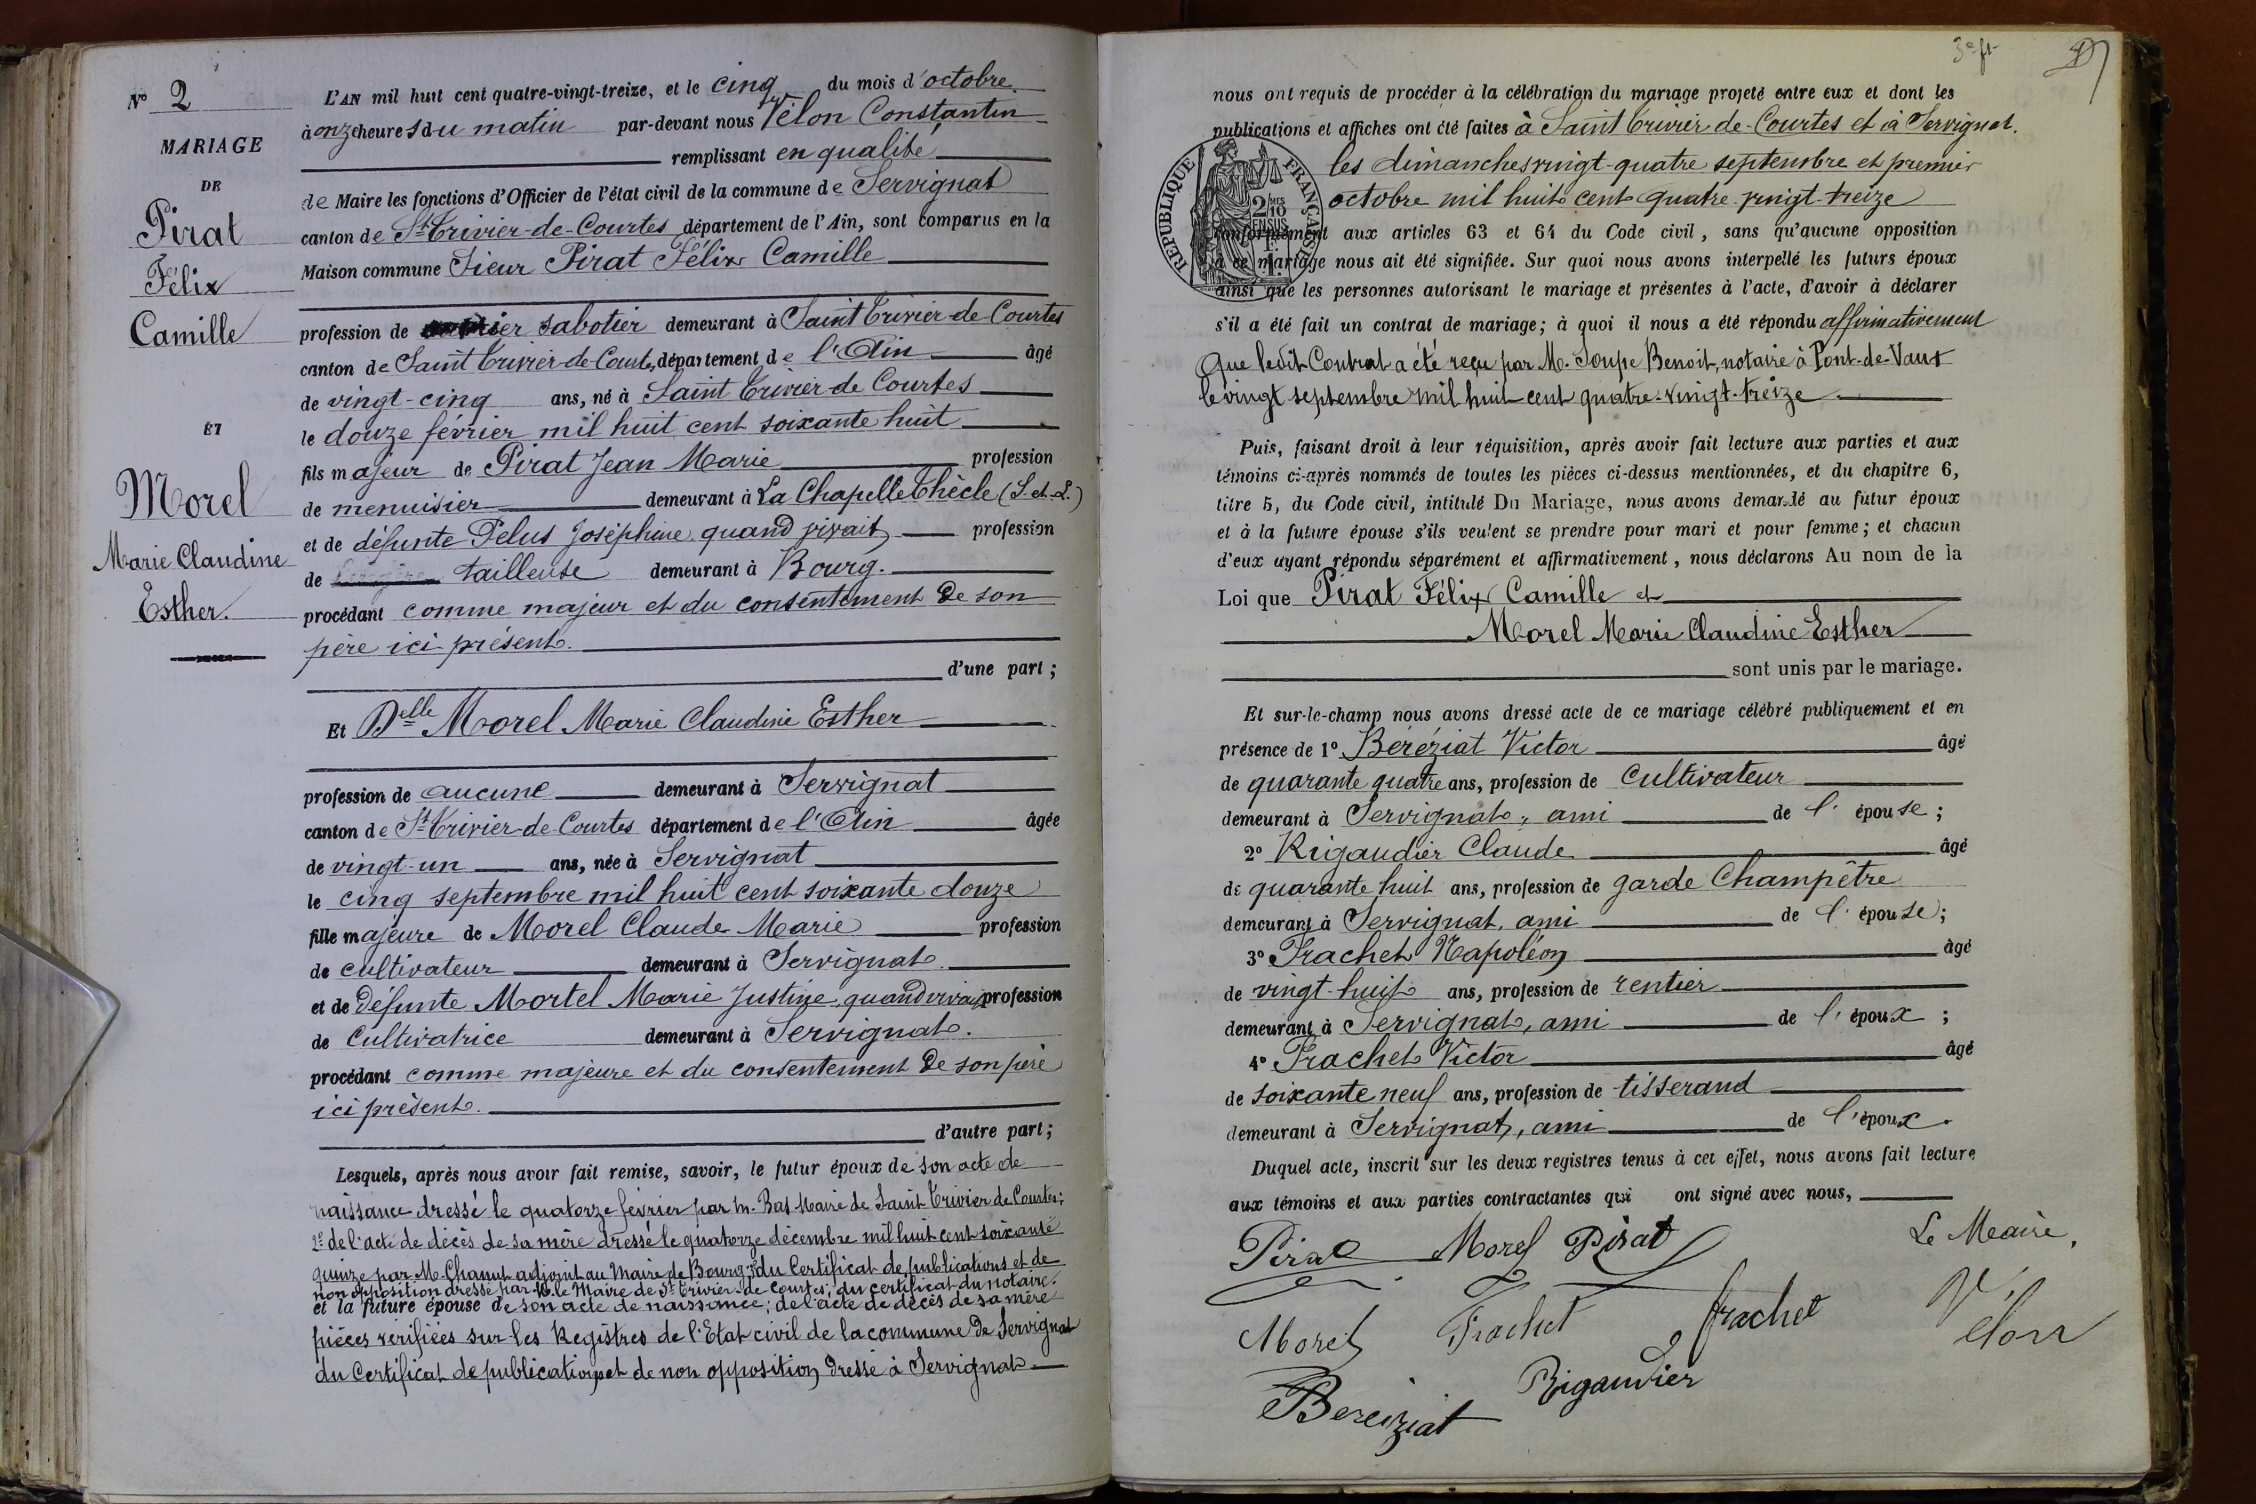 N° 2
MARIAGE
DE
Pirat
Félix
Camille
ET
Morel
Marie Claudine
Esther.
L'AN mil huit cent quatre-vingt-treize, et le cinq du mois d'octobre.
à onze heures du matin par-devant nous Vélon Constantin
remplissant en qualité
de Maire les fonctions d'Officier de l'état civil de la commune de Servignat
canton de St Trivier-de-Courtes département de l'Ain, sont comparus en la
Maison commune Sieur Pirat Félix Camille
profession de sabotier demeurant à Saint Trivier-de Courtes
canton de Saint Trivier-de-Courtes, département de l'Ain âgé
de vingt-cinq ans, né à Saint Trivier-de Courtes
le douze février mil huit cent soixante huit
fils majeur de Pirat Jean Marie profession
de menuisier demeurant à La Chapelle Thècle (S.-et-L.)
et de défunte Pelus Joséphine quand vivait profession
de tailleuse demeurant à Bourg.
procédant comme majeur et du consentement de son
père ici présent.
d'une part ;
Et Delle Morel Marie Claudine Esther
profession de aucune demeurant à Servignat
canton de St Trivier-de-Courtes département de l'Ain âgée
de vingt-un ans, née à Servignat
le cinq septembre mil huit cent soixante douze
fille majeure de Morel Claude Marie profession
de cultivateur demeurant à Servignat
et de défunte Mortel Marie Justine, quand vivait profession
de Cultivatrice demeurant à Servignat.
procédant comme majeure et du consentement de son père
ici présent.
d'autre part ;
Lesquels, après nous avoir fait remise, savoir, le futur époux de son acte de
naissance dressé le quatorze février par M. Bas Maire de Saint Trivier de Courtes;
2° de l'acte de décès de sa mère dressé le quatorze décembre mil huit cent soixante
quinze par M. Chanut adjoint au Maire de Bourg; du Certificat de publications et de
non opposition dressé par M. le Maire de St Trivier-de Courtes; du certificat du notaire.
et la future épouse de son acte de naissance; de l'acte de décès de sa mère
pièces vérifiées sur les Registres de l'Etat civil de la commune de Servignat
du Certificat de publications et de non opposition dressé à Servignat
3e ft
nous ont requis de procéder à la célébration du mariage projeté entre eux et dont les
publications et affiches ont été faites à Saint Trivier-de-Courtes et à Servignat.
les dimanches vingt-quatre septembre et premier
octobre mil huit cent quatre vingt-treize
RÉPUBLIQUE FRANÇAISE
2 MES 10 EN SUS
conformément aux articles 63 et 64 du Code civil, sans qu'aucune opposition
à ce mariage nous ait été signifiée. Sur quoi nous avons interpellé les futurs époux
ainsi que les personnes autorisant le mariage et présentes à l'acte, d'avoir à déclarer
s'il a été fait un contrat de mariage; à quoi il nous a été répondu affirmativement
que ledit Contrat a été reçu par M. Soupe Benoit, notaire à Pont-de-Vaux
le vingt septembre mil huit cent quatre-vingt-treize
Puis, faisant droit à leur réquisition, après avoir fait lecture aux parties et aux
témoins ci-après nommés de toutes les pièces ci-dessus mentionnées, et du chapitre 6,
titre 5, du Code civil, intitulé Du Mariage, nous avons demandé au futur époux
et à la future épouse s'ils veulent se prendre pour mari et pour femme; et chacun
d'eux ayant répondu séparément et affirmativement, nous déclarons Au nom de la
Loi que Pirat Félix Camille et
Morel Marie Claudine Esther
sont unis par le mariage.
Et sur-le-champ nous avons dressé acte de ce mariage célébré publiquement et en
présence de 1° Béréziat Victor âgé
de quarante quatre ans, profession de Cultivateur
demeurant à Servignat, ami de l'épouse;
2° Rigaudier Claude âgé
de quarante huit ans, profession de garde Champêtre
demeurant à Servignat, ami de l'épouse;
3° Frachet Napoléon âgé
de vingt-huit ans, profession de rentier
demeurant à Servignat, ami de l'époux ;
4° Frachet Victor âgé
de soixante neuf ans, profession de tisserand
demeurant à Servignat, ami de l'époux.
Duquel acte, inscrit sur les deux registres tenus à cet effet, nous avons fait lecture
aux témoins et aux parties contractantes qui ont signé avec nous,
Pirat Morel Pirat
Le Maire,
Morel Frachet frachet
Vélon
Rigaudier
Bereiziat